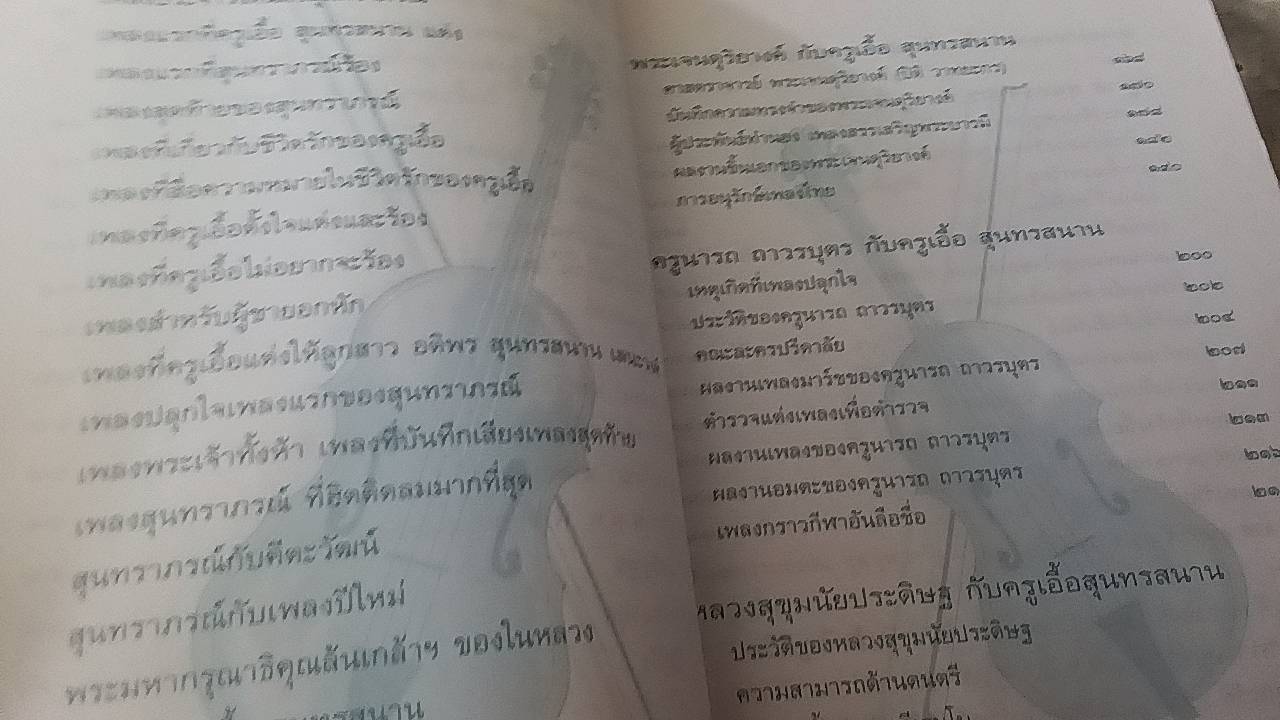 เพลงแรกที่ครูเอื้อ สุนทรสนาน แต่ง
เพลงแรกที่สุนทราภรณ์ร้อง
เพลงสุดท้ายของสุนทราภรณ์
เพลงที่เกี่ยวกับชีวิตรักของครูเอื้อ
เพลงที่สื่อความหมายในชีวิตรักของครูเอื้อ
เพลงที่ครูเอื้อตั้งใจแต่งและร้อง
เพลงที่ครูเอื้อไม่อยากจะร้อง
เพลงสำหรับผู้ชายอกหัก
เพลงที่ครูเอื้อแต่งให้ลูกสาว อติพร สุนทรสนาน
เพลงปลุกใจเพลงแรกของสุนทราภรณ์
เพลงพระเจ้าทั้งห้า เพลงที่บันทึกเสียงเพลงสุดท้าย
เพลงสุนทราภรณ์ ที่ฮิตติดลมมากที่สุด
สุนทราภรณ์กับคีตะวัฒน์
สุนทราภรณ์กับเพลงปีใหม่
พระมหากรุณาธิคุณล้นเกล้าฯ ของในหลวง
พระเจนดุริยางค์ กับครูเอื้อ สุนทรสนาน
ศาสตราจารย์ พระเจนดุริยางค์ (ปิติ วาทยะกร) ๑๖๘
บันทึกความทรงจำของพระเจนดุริยางค์ ๑๗๐
ผู้ประพันธ์ทำนอง เพลงสรรเสริญพระบารมี ๑๗๘
ผลงานชิ้นเอกของพระเจนดุริยางค์ ๑๘๒
การอนุรักษ์เพลงไทย ๑๙๐
ครูนารถ ถาวรบุตร กับครูเอื้อ สุนทรสนาน
เหตุเกิดที่เพลงปลุกใจ ๒๐๐
ประวัติของครูนารถ ถาวรบุตร ๒๐๒
คณะละครปรีดาลัย ๒๐๔
ผลงานเพลงมาร์ชของครูนารถ ถาวรบุตร ๒๐๗
ตำรวจแต่งเพลงเพื่อตำรวจ ๒๑๑
ผลงานเพลงของครูนารถ ถาวรบุตร ๒๑๓
ผลงานอมตะของครูนารถ ถาวรบุตร ๒๑๖
เพลงกราวกีฬาอันลือชื่อ
หลวงสุขุมนัยประดิษฐ กับครูเอื้อสุนทรสนาน
ประวัติของหลวงสุขุมนัยประดิษฐ
ความสามารถด้านดนตรี